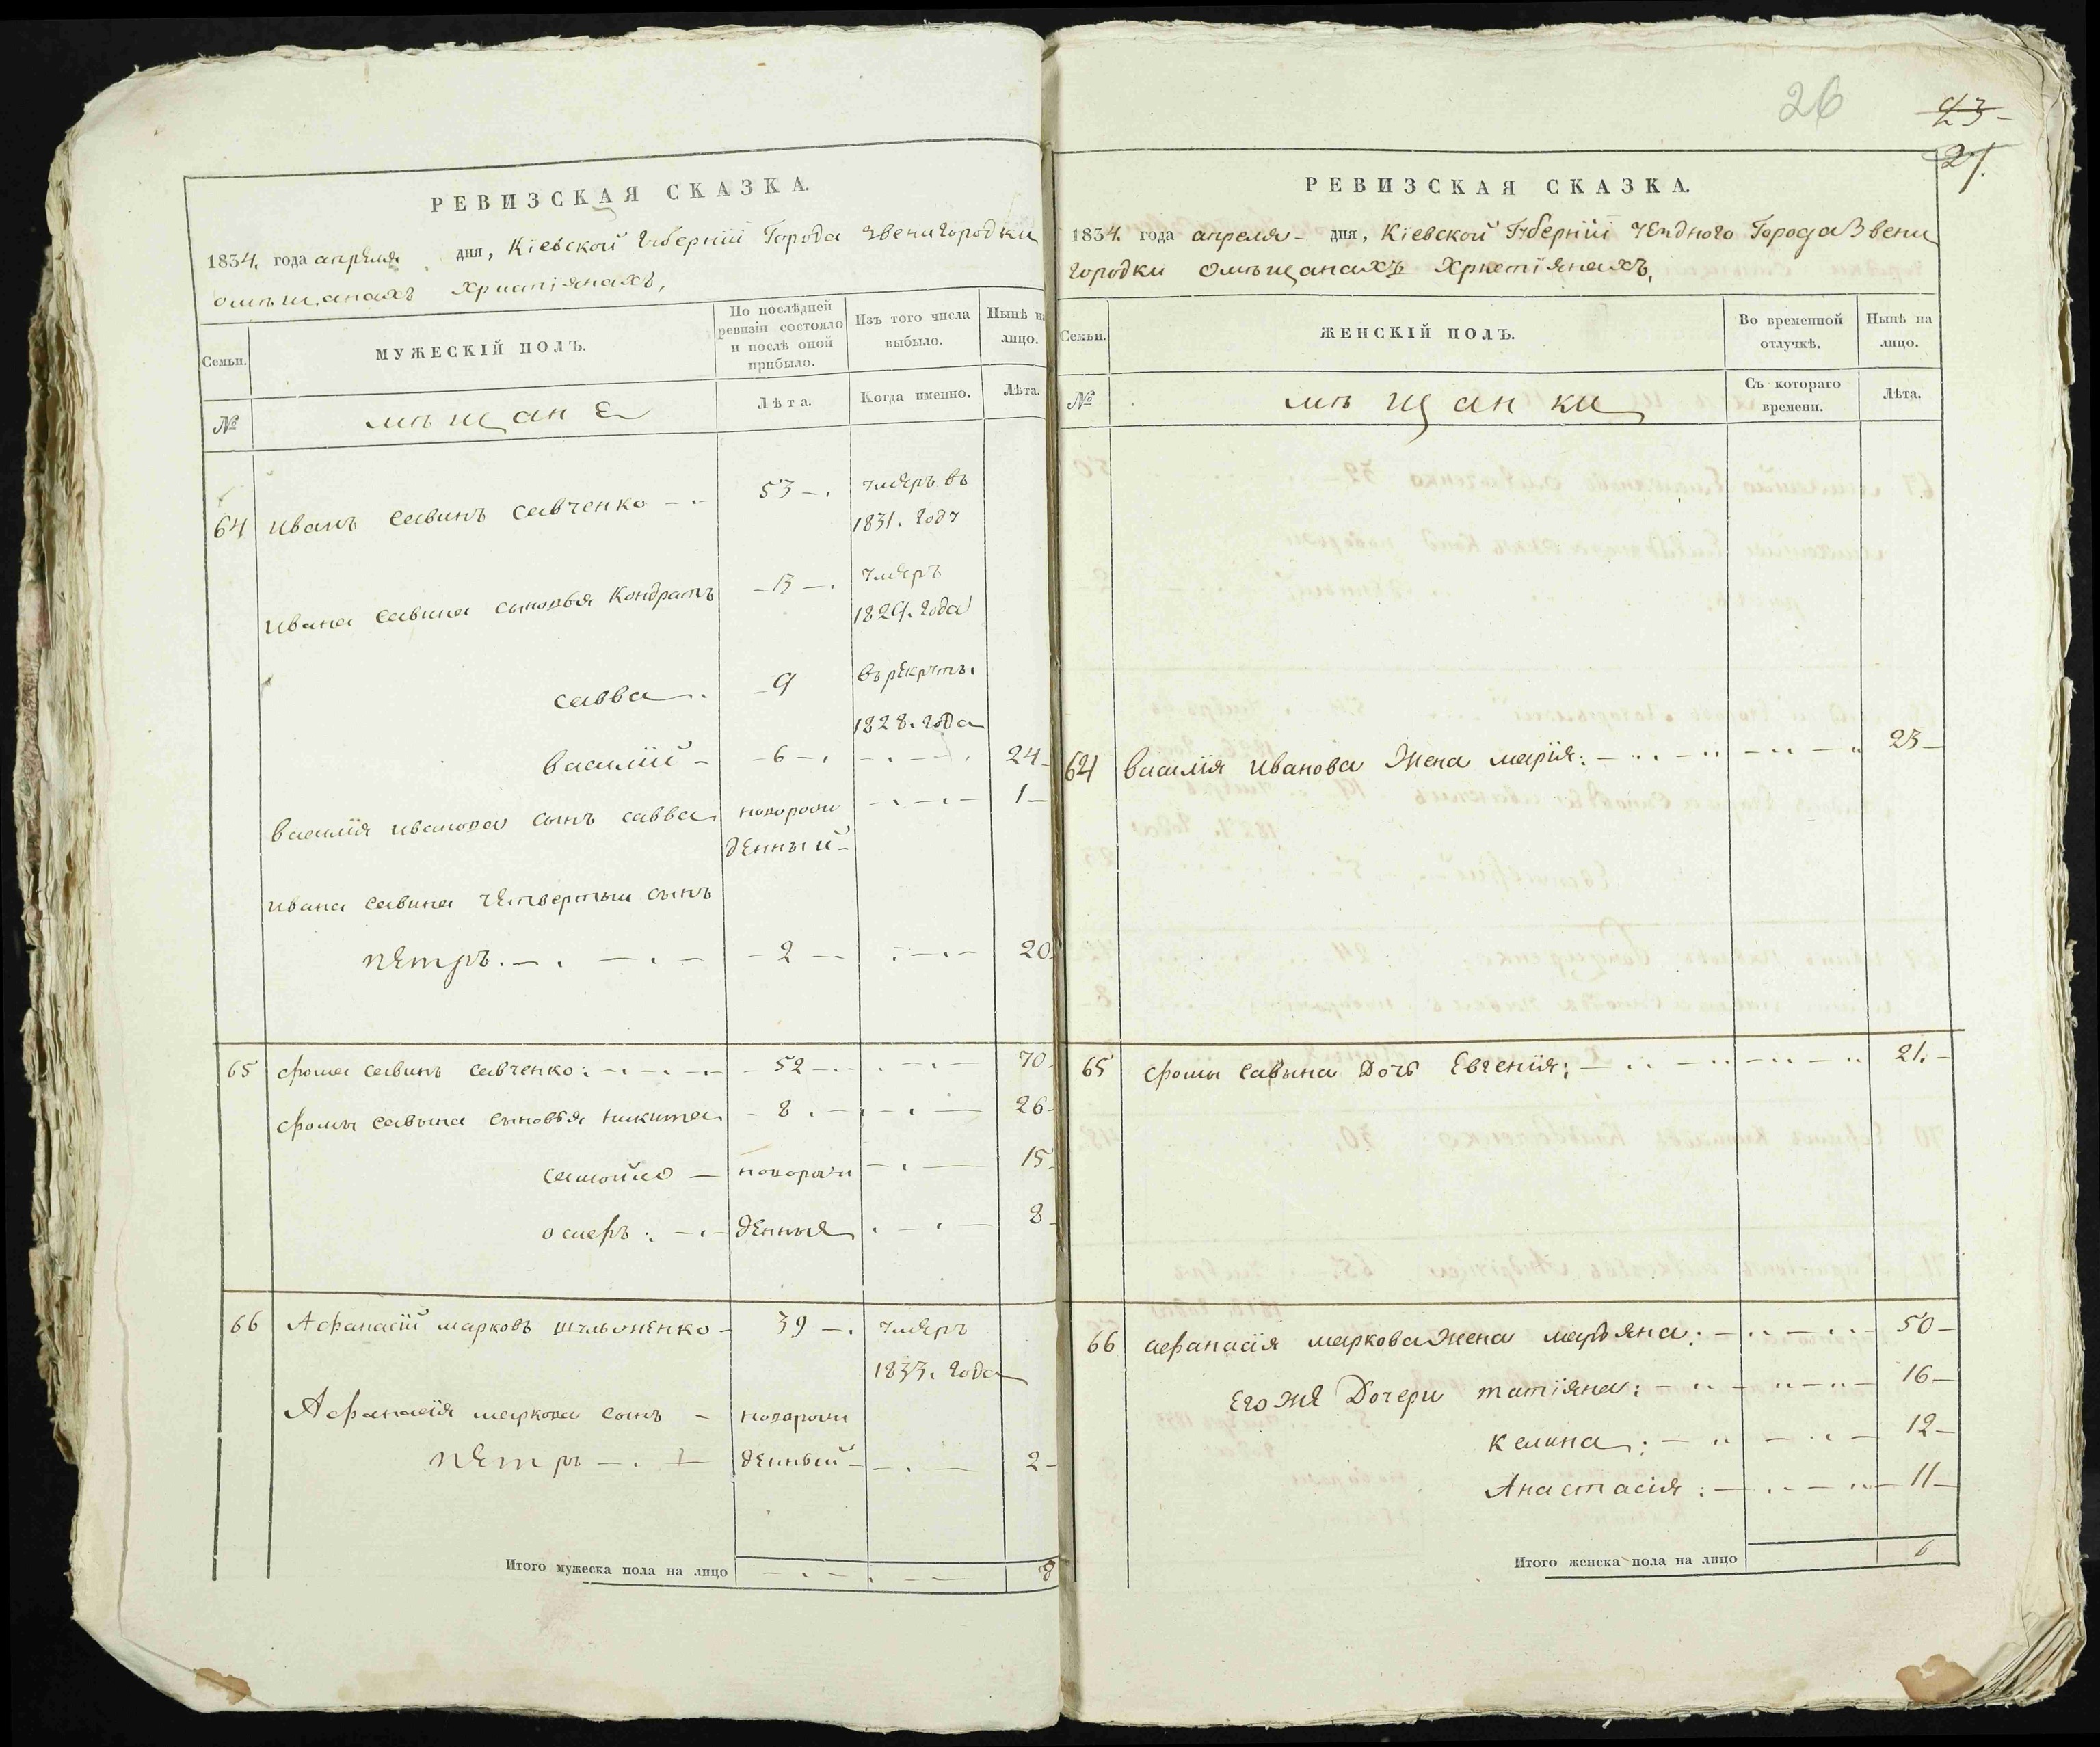 РЕВИЗСКАЯ СКАЗКА.
1834. года апреля дня, Кіевской Губерніи Города Звенигородки
омѣщанахъ Христіянахъ,
Семьи.
МУЖЕСКІЙ ПОЛЪ.
По послѣдней ревизіи состояло и послѣ оной прибыло.
Изъ того числа выбыло.
Нынѣ на лицо.
№
мѣщане
Лѣта.
Когда именно.
Лѣта.
64 иванъ савинъ савченко 53 умеръ въ
1831. году
ивана савина сыновья кондратъ 13 умеръ
1829. года
савва 9 въ рекруты.
1828. года
василій 6 24
василія иванова сынъ савва новорож 1
денный
ивана савина четвертый сынъ
петръ. 2 20
65 фома савинъ савченко: 52 70
фомы савина сыновья никита 8 26
самойло новорож 15
осифъ: денныя 8
66 Афанасій марковъ шульженко 39 умеръ
1833. года
Афанасія маркова сынъ новорож
петръ денный 2
Итого мужеска пола на лицо 8
26
23
27.
РЕВИЗСКАЯ СКАЗКА.
1834. года апреля дня, Кіевской Губерніи уезднаго Города Звени
городки омѣщанахъ Христіянахъ,
Семьи.
ЖЕНСКІЙ ПОЛЪ.
Во временной отлучкѣ.
Нынѣ на лицо.
№
мѣщанки
Съ котораго времени.
Лѣта.
64 василія иванова жена марія: 23
65 фомы савына дочь Евгенія: 21.
66 афанасія маркова жена марьяна: 50
Его же Дочери татіяна: 16
келина: 12
Анастасія: 11
Итого женска пола на лицо 6